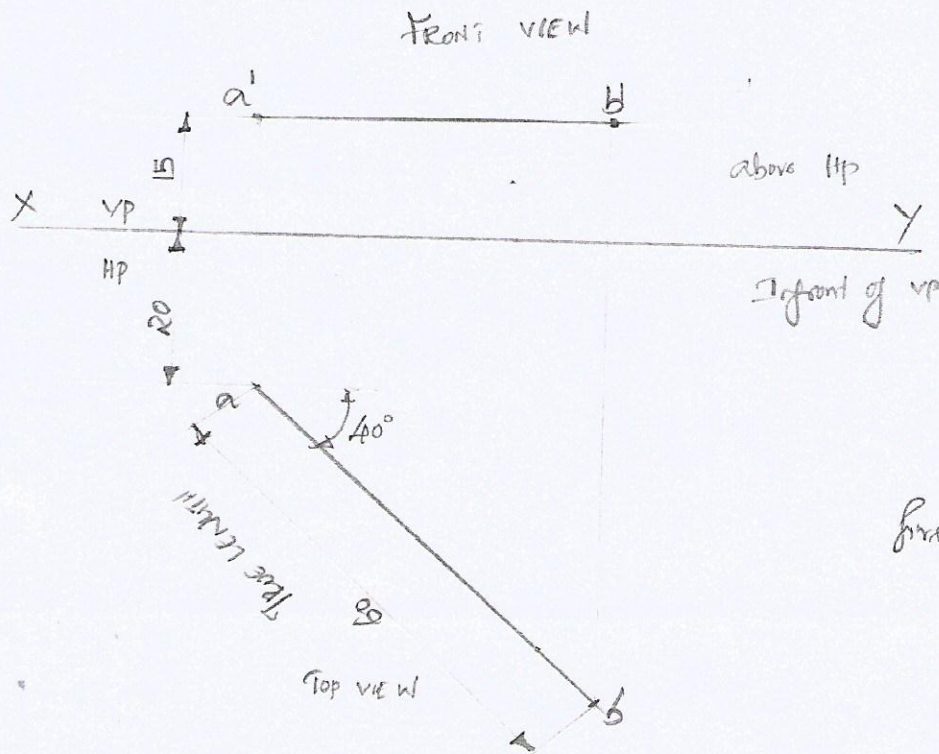 FRONT VIEW
a'
b'
15
above Hp
X
VP
Y
HP
Infront of VP
20
a
40°
TRUE LENGTH
60
TOP VIEW
b